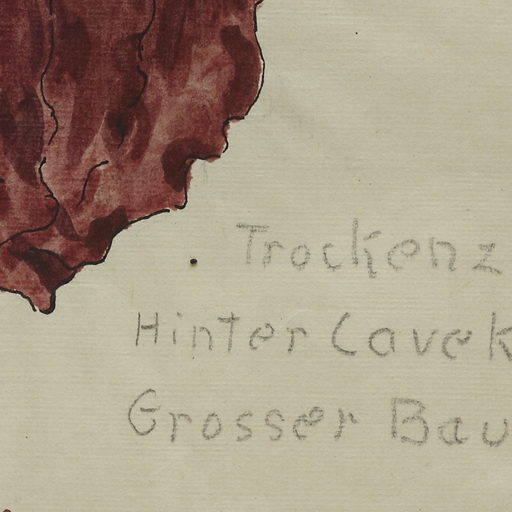 Trockenz
Hinter Cavek
Grosser Bau